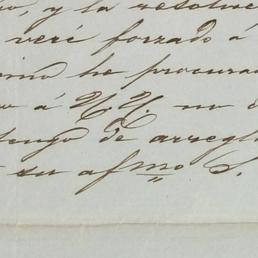 y la resolu
veré forzado á
he procura
á U.U. un
tengo de arregl
su afmo S.